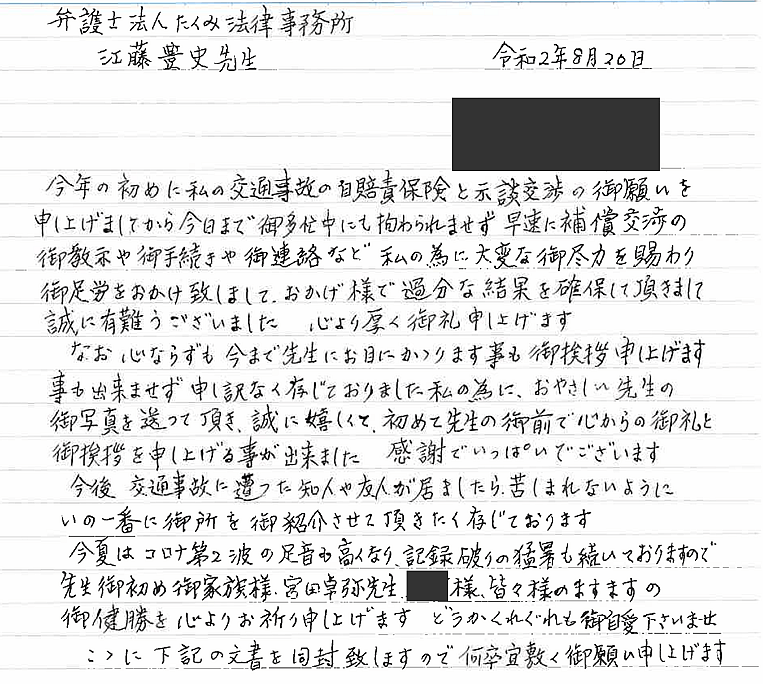 弁護士法人たくみ法律事務所
江藤豊史先生
令和2年8月20日
今年の初めに私の交通事故の自賠責保険と示談交渉の御願いを
申し上げましてから今日まで御多忙中にも拘わられませず早速に補償交渉の
御教示や御手続きや御連絡など私の為に大変な御尽力を賜わり
御足労をおかけ致しまして、おかげ様で過分な結果を確保して頂きまして
誠に有難うございました 心より厚く御礼申し上げます
なお心ならずも今まで先生にお目にかゝります事も御挨拶申し上げます
事も出来ませず申し訳なく存じておりました私の為に、おやさしい先生の
御写真を送って頂き、誠に嬉しくて、初めて先生の御前で心からの御礼と
御挨拶を申し上げる事が出来ました 感謝でいっぱいでございます
今後 交通事故に遭った知人や友人が居ましたら、苦しまれないように
いの一番に御所を御紹介させて頂きたく存じております
今夏はコロナ第2波の足音も高くなり、記録破りの猛暑も続いておりますので
先生御初め御家族様、宮田卓弥先生、様、皆々様のますますの
御健勝を心よりお祈り申し上げます どうかくれぐれも御自愛下さいませ
こゝに下記の文書を同封致しますので何卒宜敷く御願い申し上げます